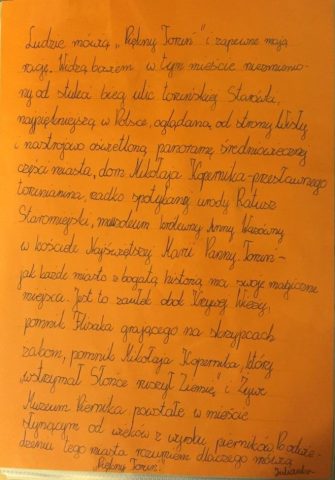 Ludzie mówią „Piękny Toruń" i zapewne mają
rację. Widzą bowiem w tym mieście niezmienio-
ny od stuleci bieg ulic toruńskiej Starówki,
najpiękniejszą w Polsce, oglądaną od strony Wisły
i nastrojowo oświetloną panoramę średniowiecznej
części miasta, dom Mikołaja Kopernika - przesławnego
torunianina, rzadko spotykanej urody Ratusz
Staromiejski, mauzoleum królewny Anny Wazówny
w kościele Najświętszej Marii Panny. Toruń -
jak każde miasto z bogatą historią ma swoje magiczne
miejsca. Jest to zaułek obok Krzywej Wieży,
pomnik Flisaka grającego na skrzypcach
żabom, pomnik Mikołaja Kopernika, który
„wstrzymał Słońce ruszył Ziemię" i Żywe
Muzeum Piernika powstałe w mieście
słynącym od wieków z wyrobu pierników. Po odwie-
dzeniu tego miasta rozumiem dlaczego mówią
„Piękny Toruń".
Julianka